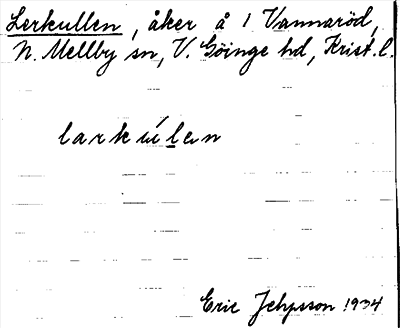 Lerkullen, åker å 1 Vannaröd,
N. Mellby sn, V. Göinge hd, Krist. l.
larkúlen
Eric Jepsson 1934